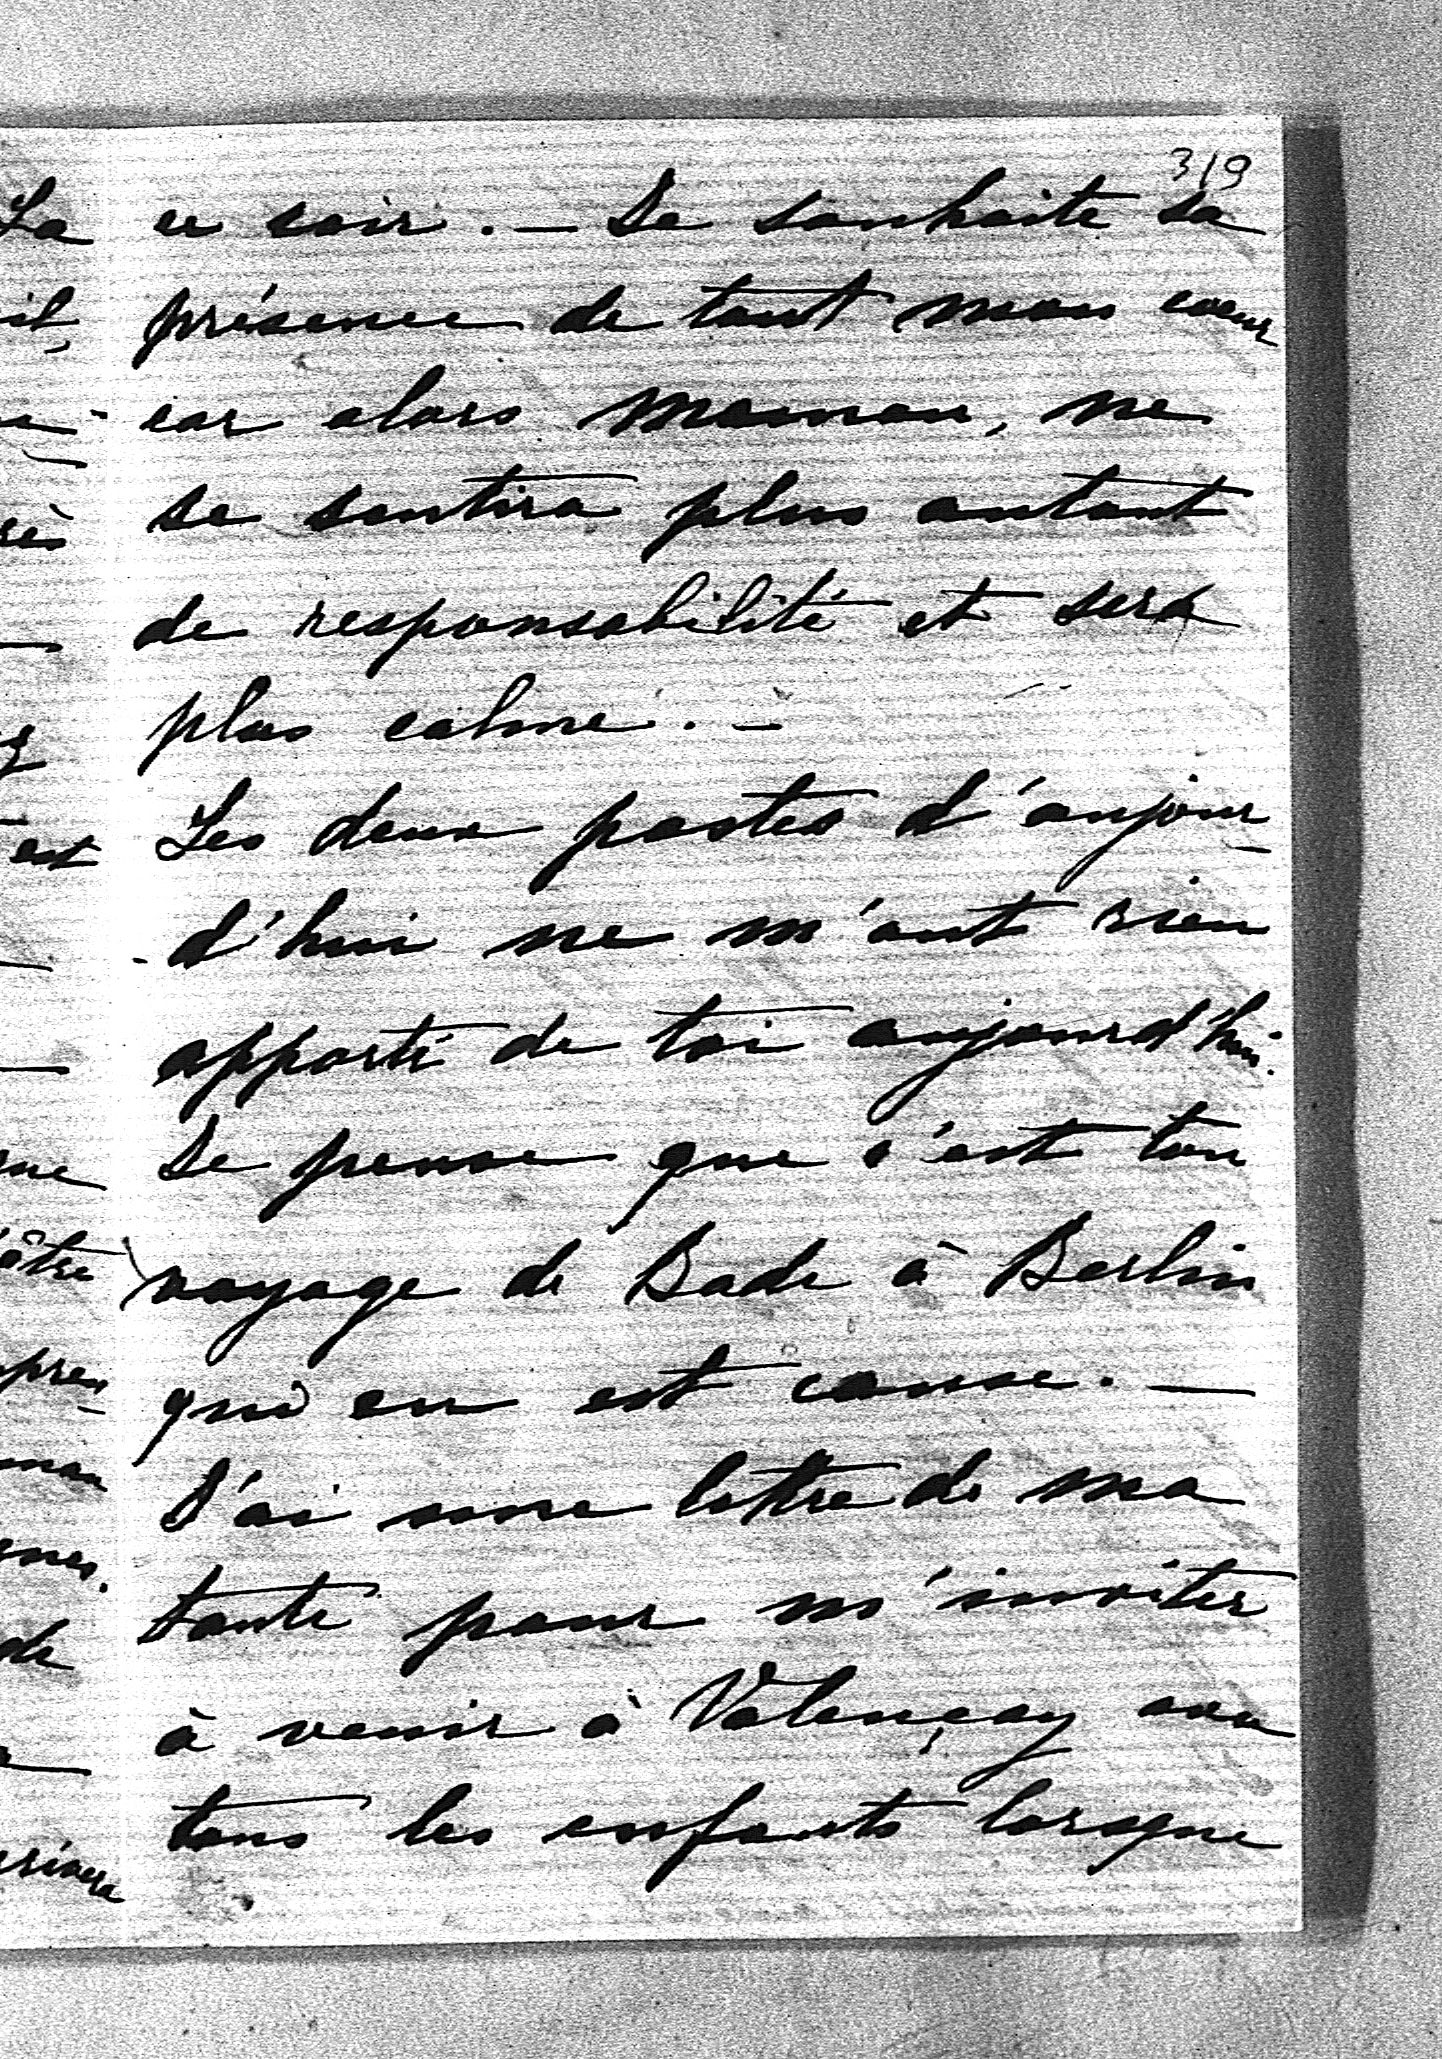 319
La
ce soir. — Je souhaite sa
présence de tout mon coeur
car alors Maman, ne
se sentira plus autant
de responsabilité et sera
plus calme. —
Les deux postes d'aujour-
-d'hui ne m'ont rien
apporté de toi aujourd'hui.
Je pense que c'est ton
voyage de Bade à Berlin
qui en est cause. —
J'ai une lettre de ma
tante pour m'inviter
à venir à Valençay avec
tous les enfants lorsque
est
être
de